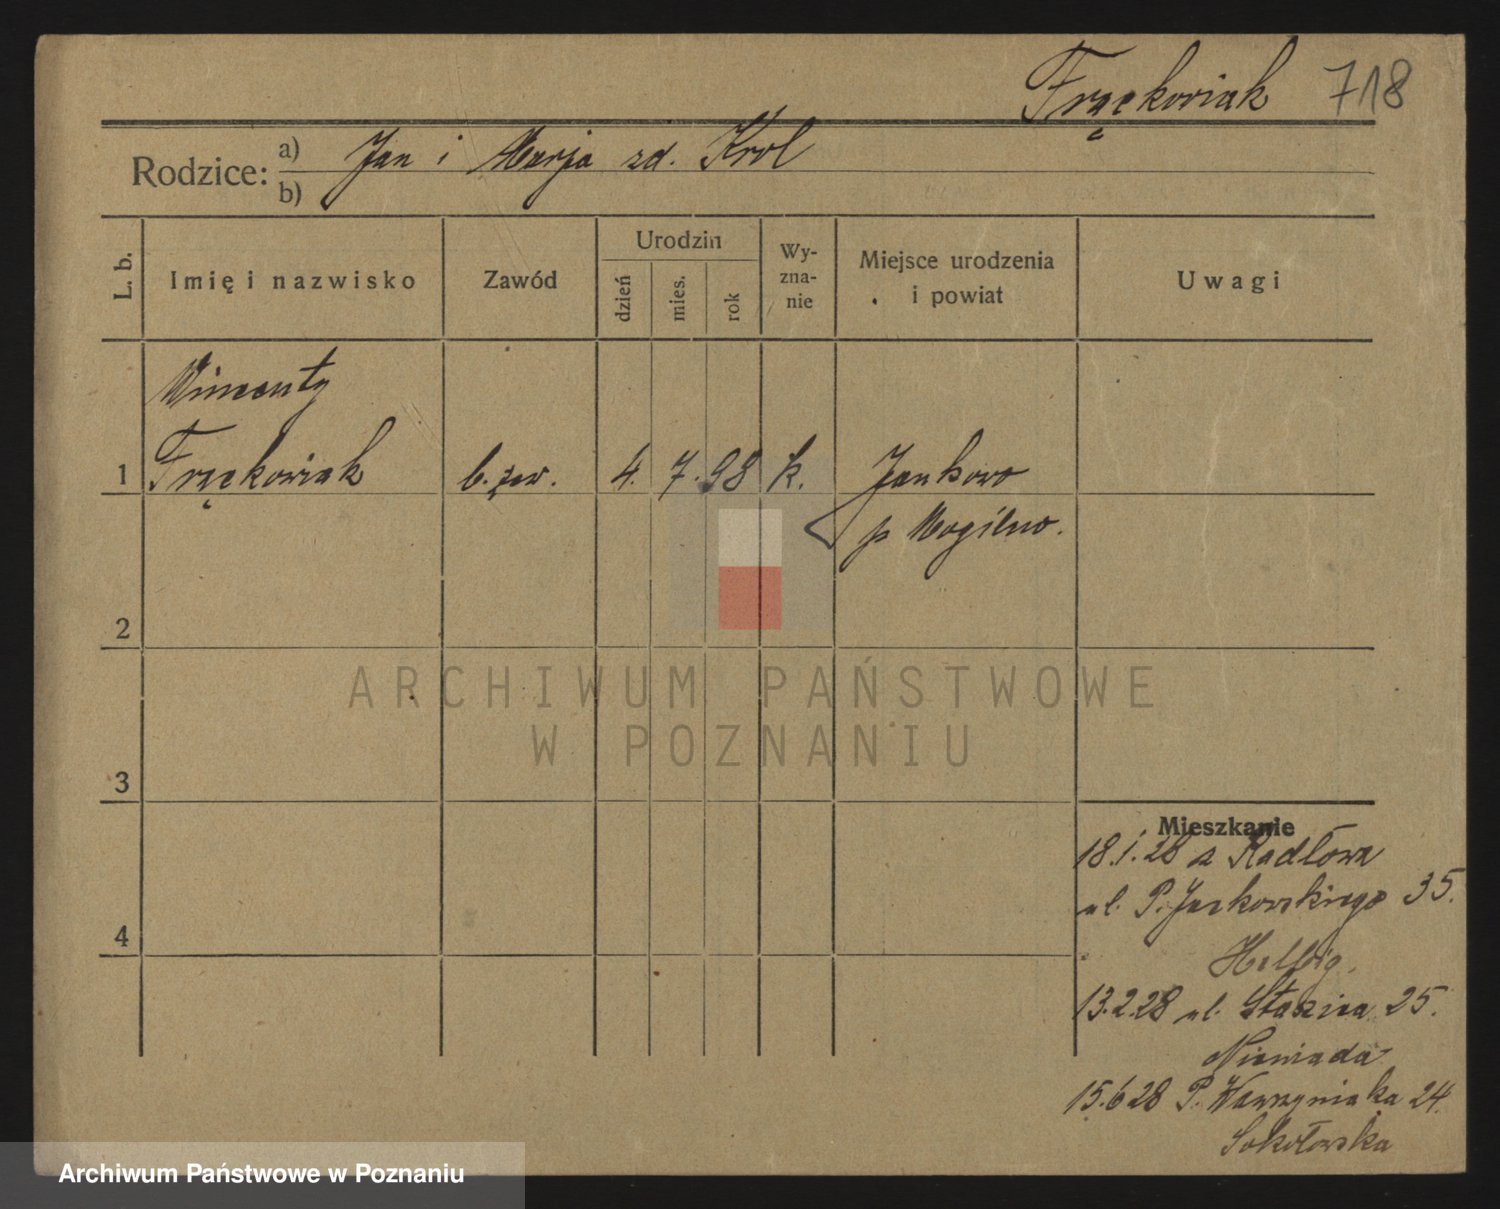 Frąckowiak 718
Rodzice: a) Jan i Marja zd. Krol
b)
L. b.
Imię i nazwisko
Zawód
Urodzin
dzień
mies.
rok
Wy-
zna-
nie
Miejsce urodzenia
i powiat
Uwagi
Wincenty
1 Frąckowiak b. zaw. 4. 7. 98 k. Jankowo
p Mogilno.
2
ARCHIWUM PAŃSTWOWE
W POZNANIU
3
Mieszkanie
18.1.28 z Radłowa
ul. P. Jackowskiego 35.
4
Helbig.
13.2.28 ul. Staszica 25.
Niewiada
15.6 28 P. Wawrzyniaka 24.
Sokołowska
Archiwum Państwowe w Poznaniu